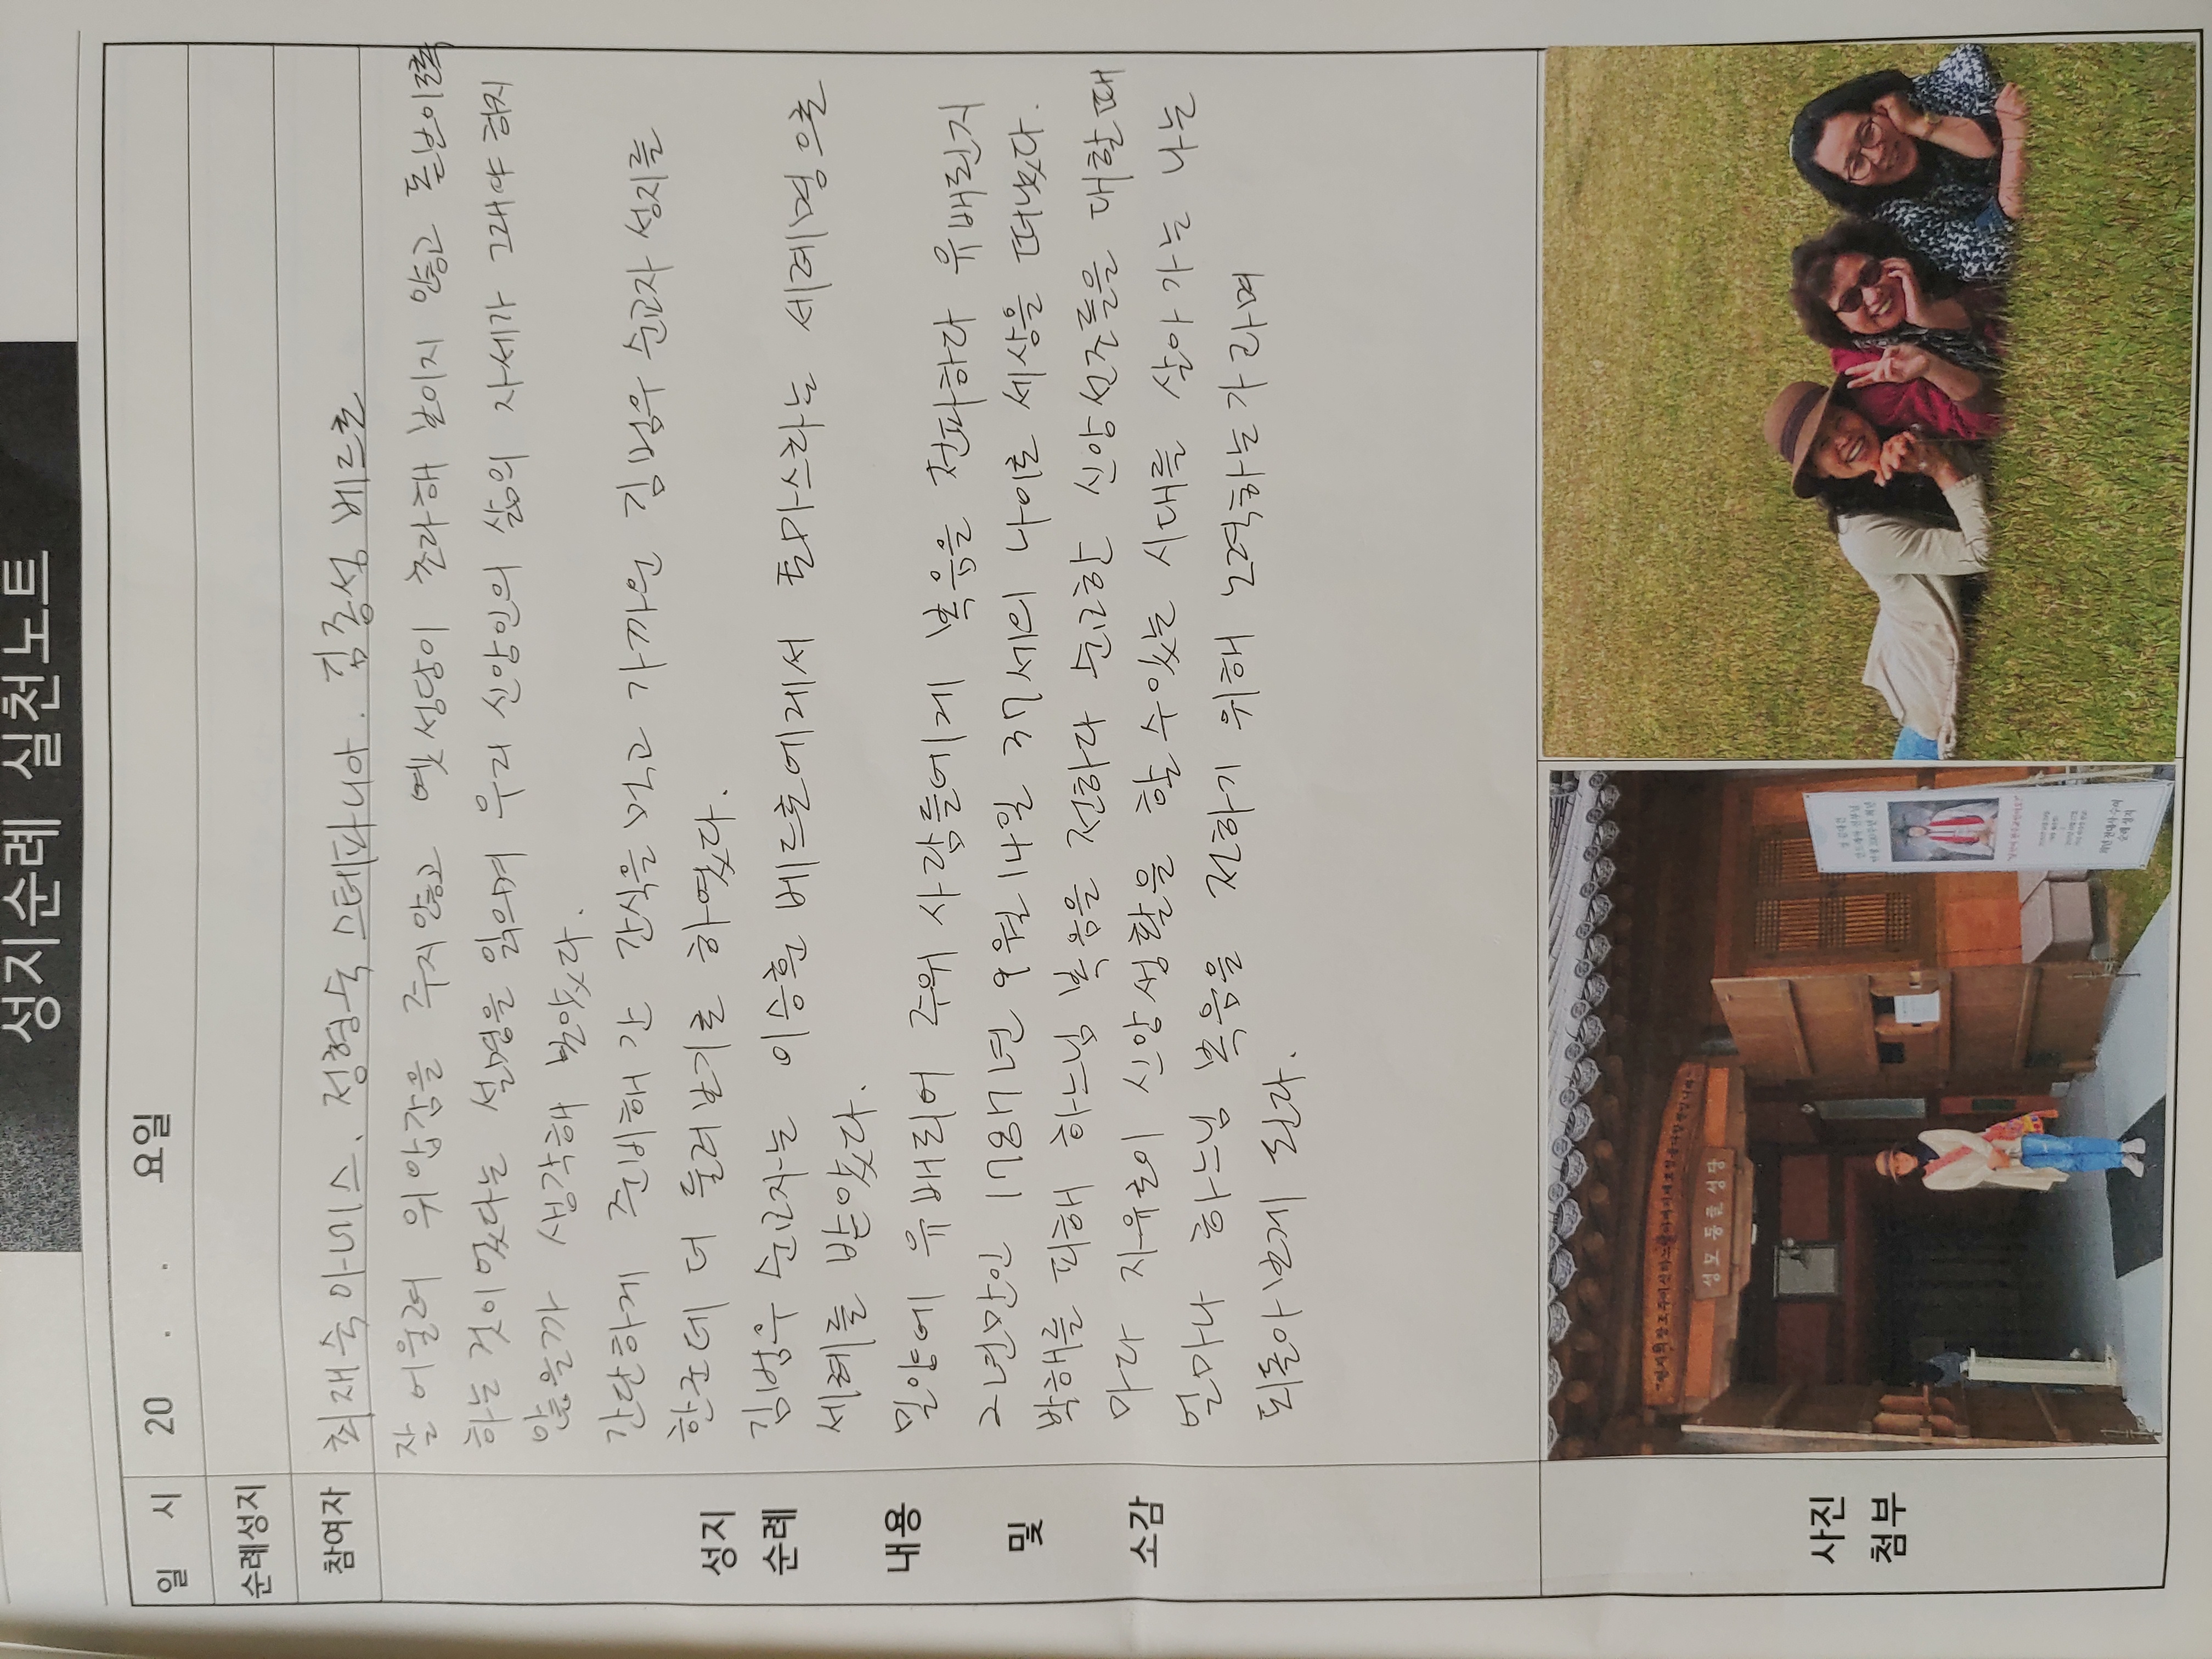 성지순례 실천노트
일 시 20 . . 요일
순례성지
참여자 최재숙 아네스. 정형숙 스테파니아. 김종성 베드로
잘 어울려 위압감을 주지않고 옛성당이 초라해 보이지 않고 돋보이도록
하는 것이었다는 설명을 읽으며 우리 신앙인의 삶의 자세가 그래야 하지
않을까 생각해 보았다.
간단하게 준비해 간 간식을 먹고 가까운 김범우 순교자 성지를
한군데 더 둘러보기로 하였다.
김범우 순교자는 이승훈 베드로에게서 토마스라는 세례명으로
세례를 받았다.
밀양에 유배되어 주위 사람들에게 복음을 전파하다 유배된지
2년만인 1787년 9월 14일 37세의 나이로 세상을 떠났다.
박해를 피해 하느님 복음을 전하다 순교한 신앙선조들을 대할때
마다 자유로이 신앙생활을 할 수 있는 시대를 살아 가는 나는
얼마나 하느님 복음을 전하기 위해 노력하는가 라며
되돌아 보게 된다.
성지
순례
내용
및
소감
사진
첨부
성모 동굴 성당
성 김대건
안드레아 신부님
탄생 200주년 희년
"당신이 천주교인이오?"
희년 전대사 수여
순례 성지